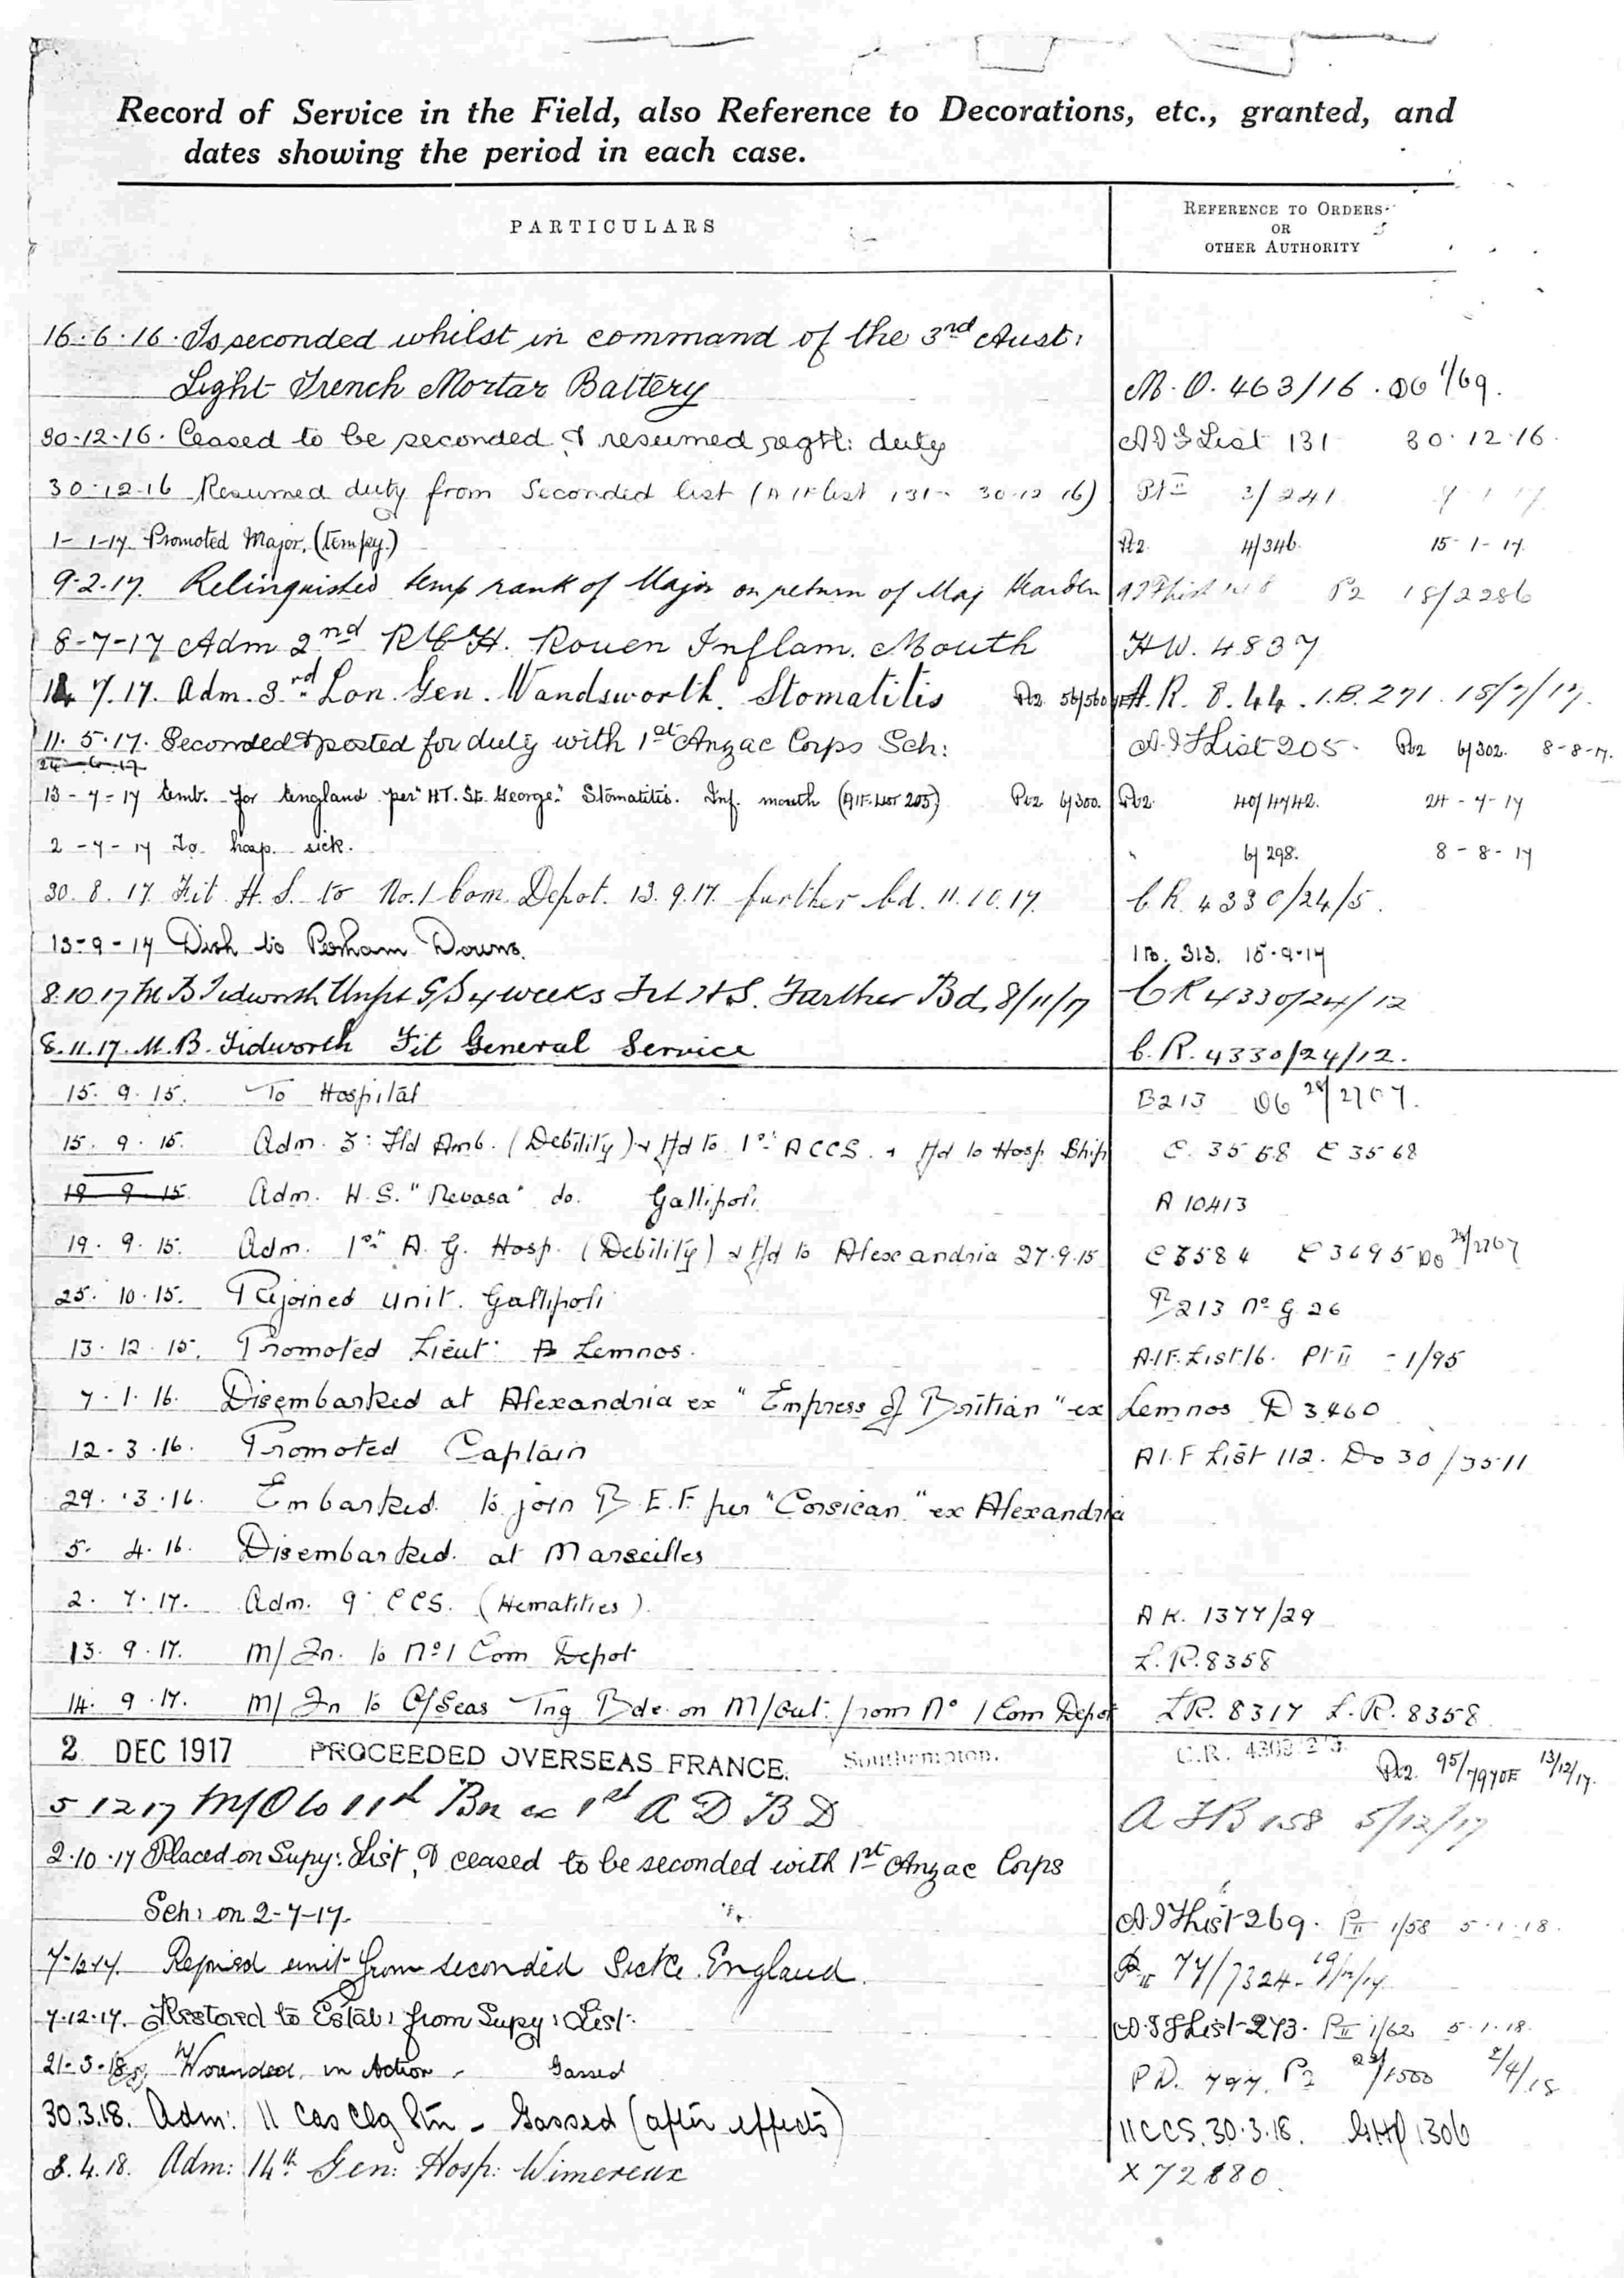 Record of Service in the Field, also Reference to Decorations, etc., granted, and
dates showing the period in each case.
PARTICULARS
REFERENCE TO ORDERS
OR
OTHER AUTHORITY
16.6.16. Is seconded whilst in command of the 3rd Aust:
Light Trench Mortar Battery M.O. 463/16. DO 1/69.
30-12-16. Ceased to be seconded & resumed regtl: duty AIF List 131 30.12.16.
30-12-16 Resumed duty from Seconded list (AIF list 131 - 30.12.16) Pt II 3/241
1-1-17. Promoted Major, (tempy.) Pt2. 4/346. 15-1-17.
9-2-17. Relinquished temp rank of Major on return of Maj P2 18/2286
8-7-17 Adm 2nd R C H. Rouen Inflam. Mouth HW. 4837
14 7.17. Adm. 3rd Lon. Gen. Wandsworth. Stomatitis A.R. 8.44. I.B. 271. 18/7/17.
11. 5.17. Seconded & posted for duty with 1st Anzac Corps Sch: A.I.F List 205. Pt2 6/302. 8-8-17.
24-6-17
13-7-17 Emb. for England per "HT. St. George." Stomatitis. Inf. mouth (AIF. List 205) Pt2 6/300. Pt2. 40/4742. 24-7-17
2-7-17 To hosp. sick. " 6/298. 8-8-17
30.8.17. Fit H.S. to No.1 Com. Depot. 13.9.17. further bd. 11.10.17. C.R. 4330/24/5.
13-9-17 Disch to Perham Downs. IB. 313. 15-9-17
8.10.17 M B Tidworth Unfit G/S 4 weeks Fit H S. Further Bd, 8/11/17 CR 4330/24/12
8.11.17. M.B. Tidworth Fit General Service C.R. 4330/24/12.
15. 9. 15. To Hospital B213 DO 28/2707.
15. 9. 15. Adm. 3: Fld Amb. (Debility) & tfd to 1st ACCS. & tfd to Hosp. Ship C. 3558 E 3568
19 9 15. Adm. H.S. "Nevasa" do. Gallipoli A 10413
19. 9. 15. Adm. 1st A. G. Hosp. (Debility) & tfd to Alexandria 27.9.15 E3584 E 3695 DO 28/2767
25. 10. 15. Rejoined unit. Gallipoli B213 No G.26
13. 12. 15. Promoted Lieut: Lemnos. A.I.F. List 16. Pt II - 1/95
7. 1. 16. Disembarked at Alexandria ex "Empress of Britian" ex Lemnos D 3460
12. 3. 16. Promoted Captain A I.F List 112. Do 30/3511
29. 3. 16. Embarked. to join B.E.F. per "Corsican" ex Alexandria
5. 4. 16. Disembarked. at Marseilles
2. 7. 17. Adm. 9 CCS. (Hematities). A K. 1377/29
13. 9. 17. M/In. to No 1 Com Depot L.R. 8358
14. 9. 17. M/In to O/Seas Tng Bde. on M/out: from No 1 Com Depot L.R. 8317 L.R. 8358
2 DEC 1917 PROCEEDED OVERSEAS FRANCE. Southampton. Pt2. 95/7970E 13/12/17.
5 12 17 M/O to 11th Bn ex 1st A D B D A F B 158 5/12/17
2.10.17 Placed on Supy: List, & ceased to be seconded with 1st Anzac Corps
Sch: on 2-7-17. A.I.F List 269. P II 1/58 5.1.18.
7-12-17. Rejoined unit from seconded Sick England. P II 77/7324
7.12.17. Restored to Estab: from Supy: List. A.I.F List 273. P II 1/62 5.1.18.
21-3-18. Wounded in Action - Gassed P D. 797. P2 23/1500 2/4/18
30.3.18. Adm: 11 Cas Clg Stn - Gassed (after effects) 11CCS. 30.3.18. 1306
8.4.18. Adm: 14th Gen: Hosp: Wimereux X 72880.